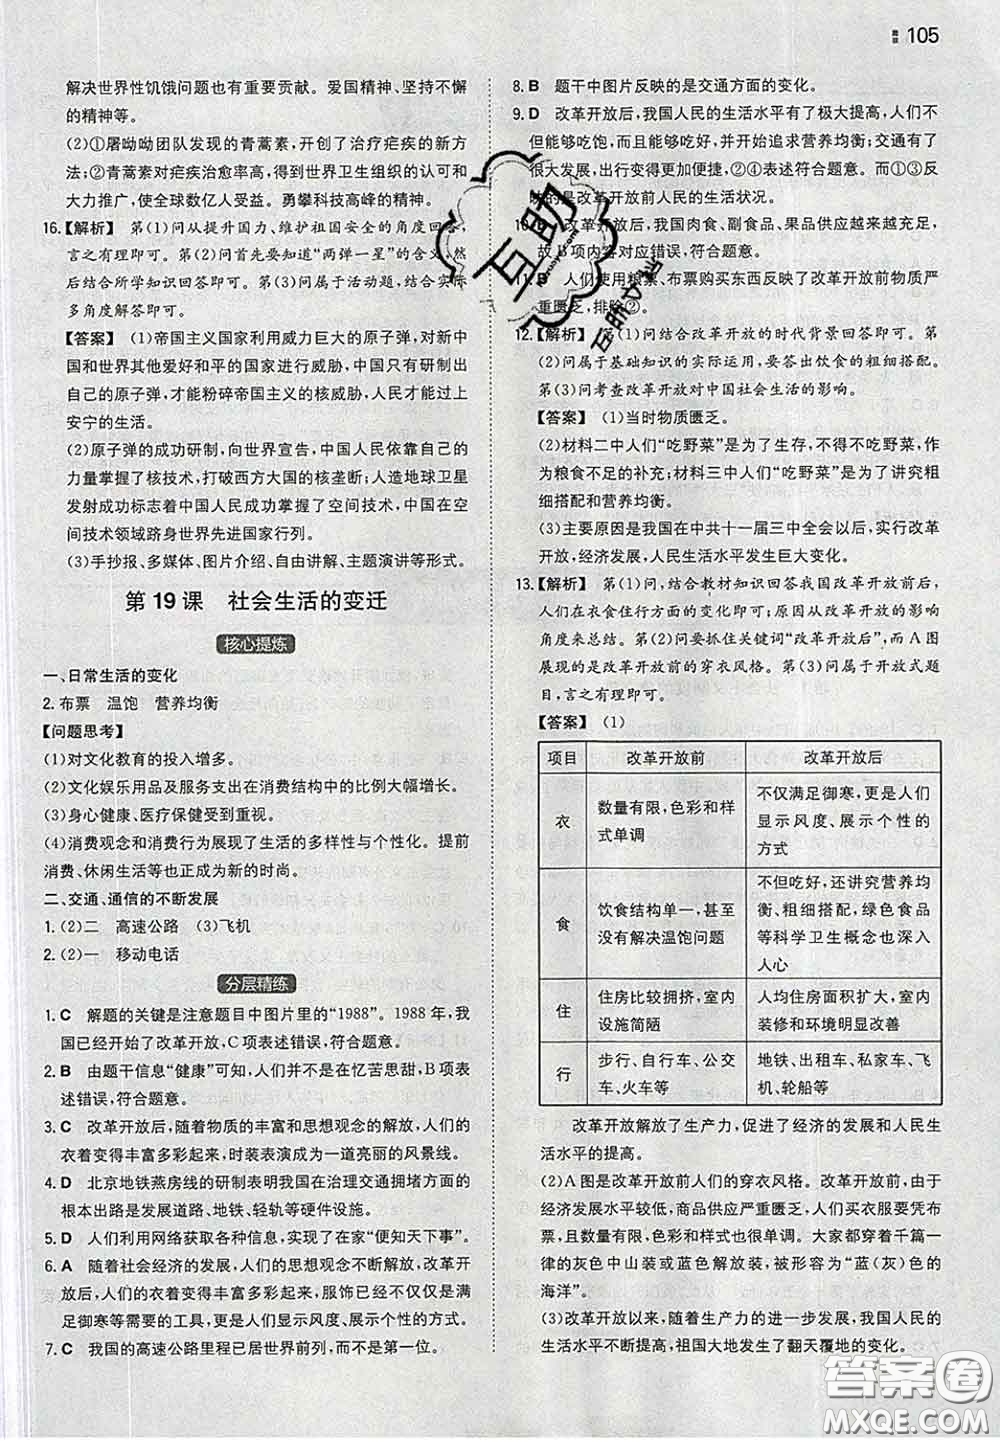 105
解决世界性饥饿问题也有重要贡献。爱国精神、坚持不懈
的精神等。
(2)①屠呦呦团队发现的青蒿素,开创了治疗疟疾的新方
法;②青蒿素对疟疾治愈率高,得到世界卫生组织的认可和
大力推广,使全球数亿人受益。勇攀科技高峰的精神。
16.【解析】 第(1)问从提升国力、维护祖国安全的角度回答,
言之有理即可。第(2)问首先要知道“两弹一星”的含义,再
结合所学知识回答即可。第(3)问属于活动题,结合实际
多角度解答即可。
【答案】 (1)帝国主义国家利用威力巨大的原子弹,对新中
国和世界其他爱好和平的国家进行威胁,中国人只有研制
出原子弹,才能粉碎帝国主义的核威胁,人民才能过上长久
安宁的生活。
(2)原子弹的成功研制,向世界宣告,中国人民依靠自己的
力量掌握了核技术,打破西方大国的核垄断;人造地球卫星
发射成功标志着中国人民成功掌握了空间技术,中国在空
间技术领域跻身世界先进国家行列。
(3)手抄报、多媒体、图片介绍、自由讲解、主题演讲等形式。
第 19 课 社会生活的变迁
核心提炼
一、日常生活的变化
2. 布票 温饱 营养均衡
【问题思考】
(1)对文化教育的投入增多。
(2)文化娱乐用品及服务支出在消费结构中的比例大幅增长。
(3)身心健康、医疗保健受到重视。
(4)消费观念和消费行为展现了生活的多样性与个性化。提前
消费、休闲生活等也正成为新的时尚。
二、交通、通信的不断发展
1. (2)二 高速公路 (3)飞机
2. (2)一 移动电话
分层精练
1. C 解题的关键是注意题目中图片里的“1988”。1988 年,我
国已经开始了改革开放,C 项表述错误,符合题意。
2. B 由题干信息“健康”可知,人们并不是在忆苦思甜,B 项表
述错误,符合题意。
3. C 改革开放后,随着物质的丰富和思想观念的解放,人们的
衣着变得丰富多彩起来,时装表演成为一道亮丽的风景线。
4. D 北京地铁燕房线的研制表明我国在治理交通拥堵方面的
根本出路是建设道路、地铁、轻轨等城市基础设施。
5. D 人们利用网络获取各种信息,实现了在家“便知天下事”。
6. A 随着社会经济的发展,人们的思想观念不断解放,改革开
放后,人们的衣着变得丰富多彩起来,服饰已经不仅仅是满
足御寒等需要的工具,更是人们显示风度、展示个性的方式。
7. C 我国的高速公路里程已居世界前列,而不是第一位。
8. B 题干中图片反映的是交通方面的变化。
9. D 改革开放后,我国人民的生活水平有了极大提高,人们不
但能够吃饱,而且能够吃好,并开始追求营养均衡;交通有了
很大发展,出行变得更加便捷,②④表述符合题意。而①③反
映的是改革开放前人民的生活状况。
改革开放后,我国肉食、副食品、果品供应越来越充足,
故 B 项内容对应错误,符合题意。
11. B 人们使用粮票、布票购买东西反映了改革开放前物质严
重匮乏,排除②。
12.【解析】 第(1)问结合改革开放的时代背景回答即可。第
(2)问属于基础知识的实际运用,要答出饮食的粗细搭配。
第(3)问考查改革开放对中国社会生活的影响。
【答案】 (1)当时物质匮乏。
(2)材料二中人们“吃野菜”是为了生存,不得不吃野菜,作
为粮食不足的补充;材料三中人们“吃野菜”是为了讲究粗
细搭配和营养均衡。
(3)主要原因是我国在中共十一届三中全会以后,实行改革
开放,经济发展,人民生活水平发生巨大变化。
13.【解析】 第(1)问,结合教材知识回答我国改革开放前后,
人们在衣食住行方面的变化即可;原因要从改革开放的影响
角度来总结。第(2)问要抓住关键词“改革开放后”,而 A 图
展现的是改革开放前的穿衣风格。第(3)问属于开放式题
目,言之有理即可。
【答案】 (1)
项目 改革开放前 改革开放后
衣 数量有限,色彩和样式单调 不仅满足御寒,更是人们显示风度、展示个性的方式
食 饮食结构单一,甚至没有解决温饱问题 不但吃好,还讲究营养均衡、粗细搭配,绿色食品等科学卫生概念也深入人心
住 住房比较拥挤,室内设施简陋 人均住房面积扩大,室内装修和环境明显改善
行 步行、自行车、公交车、火车等 地铁、出租车、私家车、飞机、轮船等
改革开放解放了生产力,促进了经济的发展和人民生
活水平的提高。
(2)A 图是改革开放前人们的穿衣风格。改革开放前,由于
经济发展水平较低,商品供应严重匮乏,人们买衣服要凭布
票,衣服的数量有限,色彩和样式也很单调。大家都穿着千篇一
律的灰色中山装或蓝色解放装,被形容为“蓝(灰)色的
海洋”。
(3)改革开放以来,随着生产力的进一步发展,我国人民的
生活水平不断提高,祖国大地发生了翻天覆地的变化。
互助
答案圈
MXQE.COM